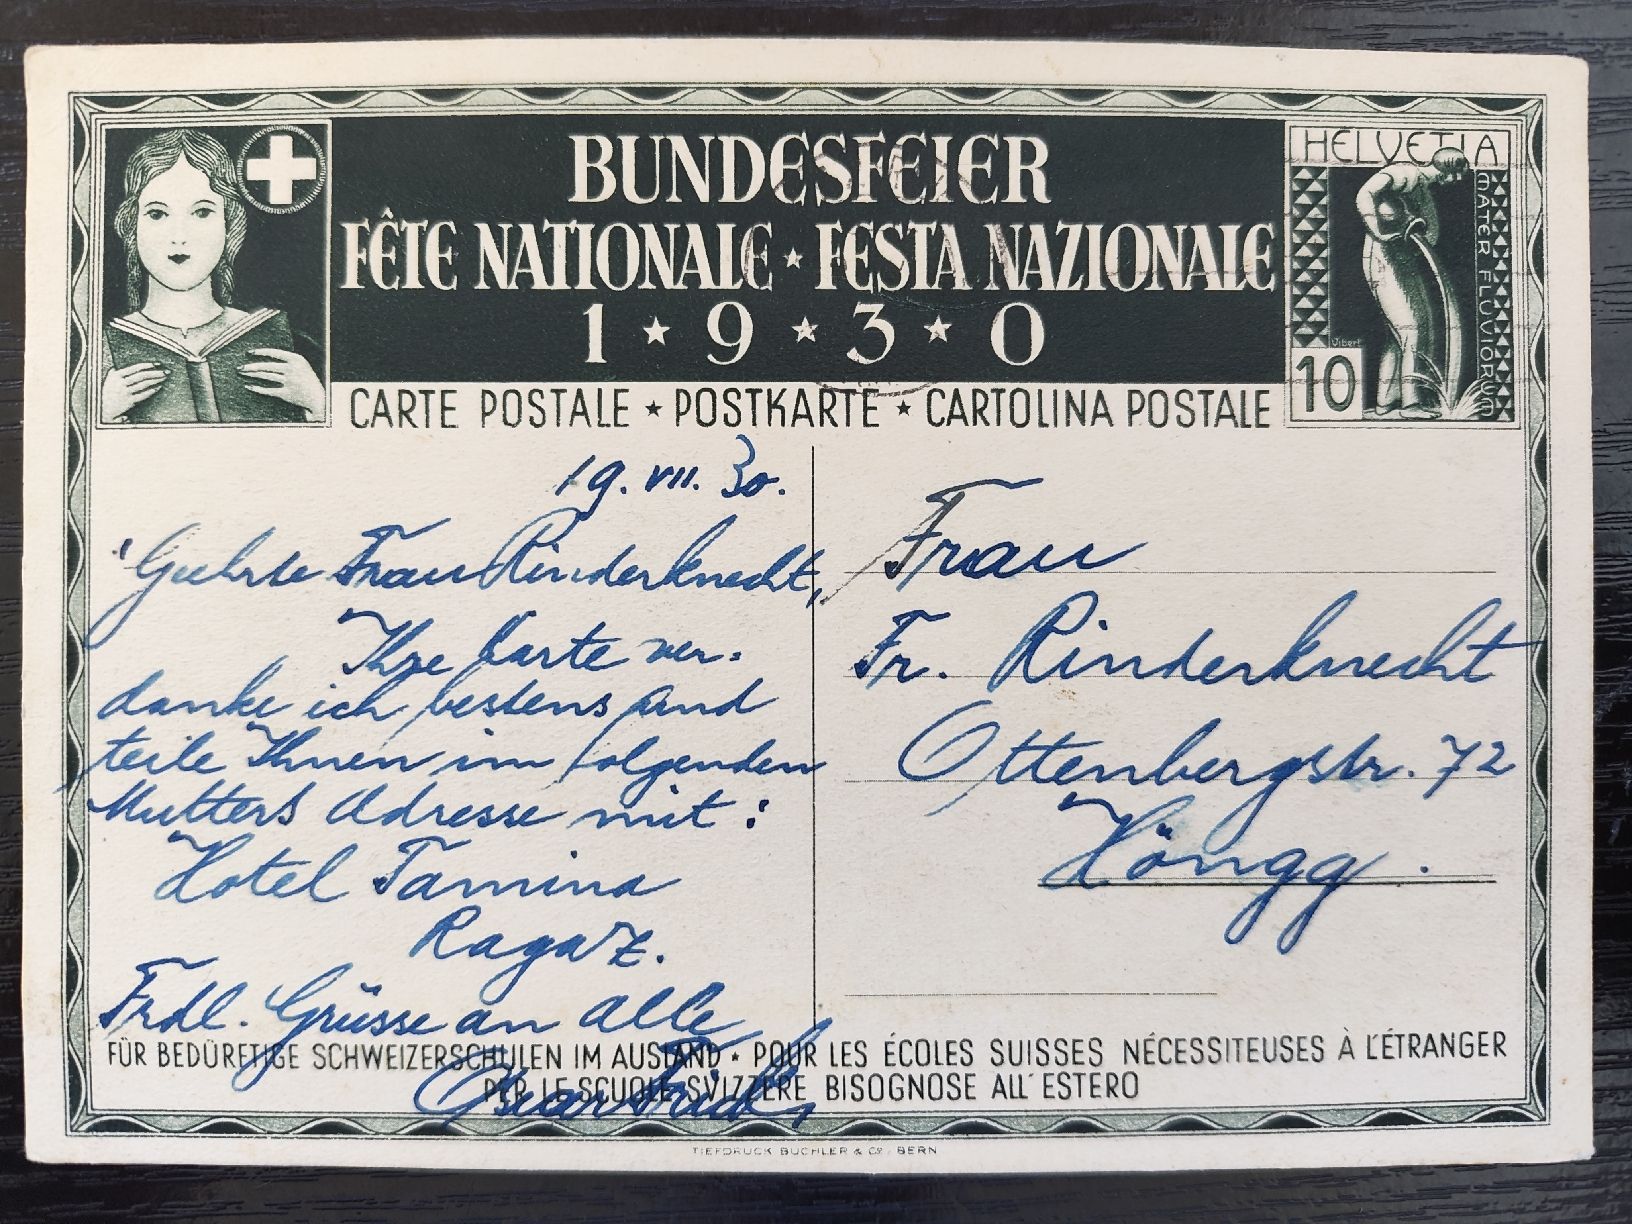 BUNDESFEIER
FÊTE NATIONALE ★ FESTA NAZIONALE
1 ★ 9 ★ 3 ★ 0
CARTE POSTALE ★ POSTKARTE ★ CARTOLINA POSTALE
HELVETIA
MATER FLUVIORUM
Vibert
10
19. VII. 30.
Geehrte Frau Rinderknecht,
Ihre Karte ver-
danke ich bestens und
teile Ihnen im folgenden
Mutters Adresse mit:
Hotel Tamina
Ragaz.
Frdl. Grüsse an alle
Oskar
Frau
Fr. Rinderknecht
Ottenbergstr. 72
Höngg.
FÜR BEDÜRFTIGE SCHWEIZERSCHULEN IM AUSLAND ★ POUR LES ÉCOLES SUISSES NÉCESSITEUSES À L'ÉTRANGER
PER LE SCUOLE SVIZZERE BISOGNOSE ALL'ESTERO
TIEFDRUCK BÜCHLER & Co. BERN